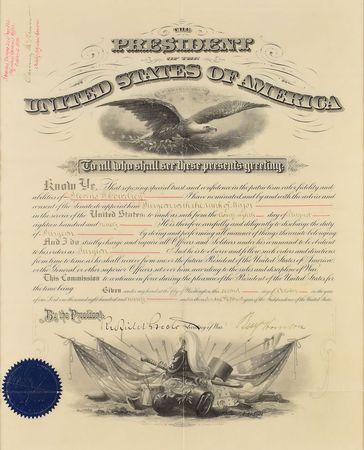 THE
PRESIDENT
OF THE
UNITED STATES OF AMERICA
To all who shall see these presents greeting:
Know Ye, That reposing special trust and confidence in the patriotism, valor, fidelity and
abilities of I have nominated and by and with the advice and
consent of the Senate do appoint him Surgeon with the rank of Major
in the service of the United States: to rank as such from the day of August
eighteen hundred and ninety He is therefore carefully and diligently to discharge the duty
of Surgeon by doing and performing all manner of things thereunto belonging.
And I do strictly charge and require all Officers and Soldiers under his command to be obedient
to his orders as Surgeon And he is to observe and follow such orders and directions
from time to time as he shall receive from me or the future President of the United States of America,
or the General or other superior Officers set over him according to the rules and discipline of War.
This Commission to continue in force during the pleasure of the President of the United States for
the time being.
Given under my hand at the City of Washington, this day of in the year
of our Lord one thousand eight hundred and ninety and in the one hundred and year of the Independence of the United States.
By the President:
Secretary of War.